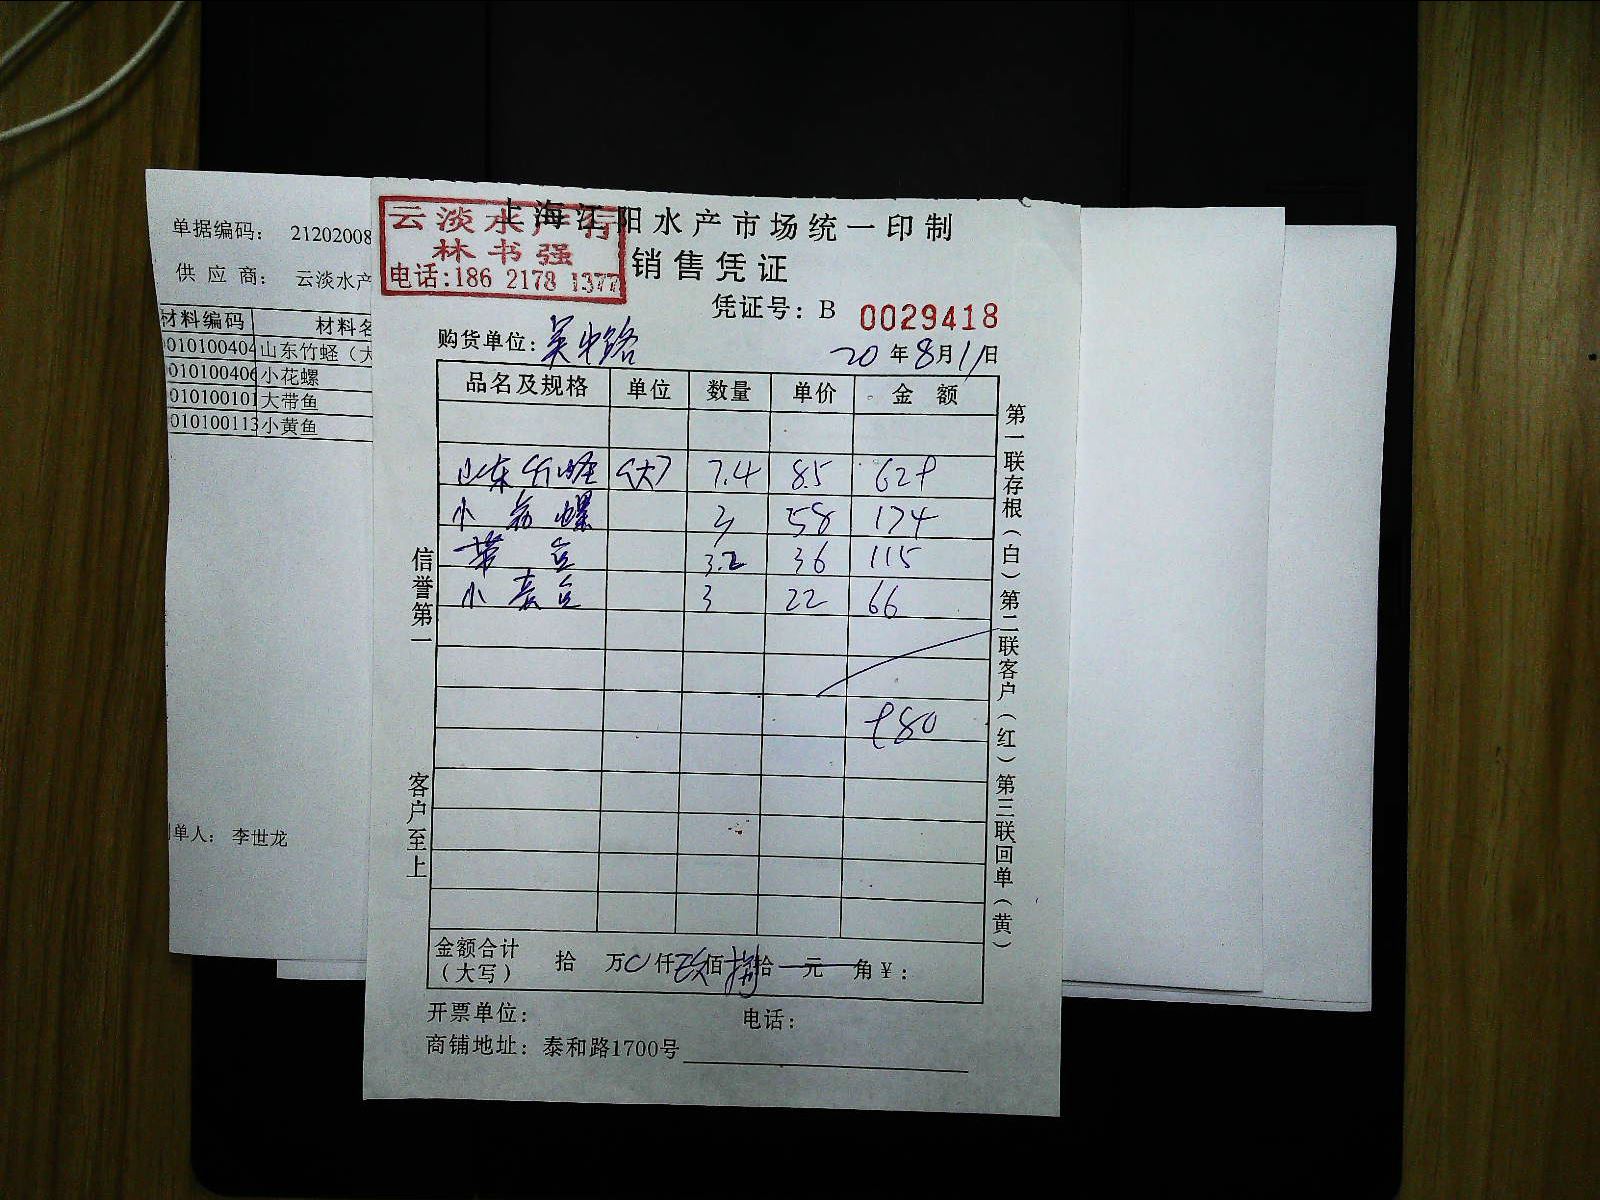 单据编码： 21202008
供 应 商： 云淡水产
材料编码 材料名
010100404 山东竹蛏（大
010100406 小花螺
010100101 大带鱼
010100113 小黄鱼
单人： 李世龙
云淡水产行
林书强
电话:186 2178 1377
上海江阳水产市场统一印制
销售凭证
凭证号：B 0029418
购货单位: 吴中路
20年8月11日
品名及规格 单位 数量 单价 金 额
山东竹蛏 (大) 7.4 85 629
小花螺 3 58 174
带鱼 3.2 36 115
小黄鱼 3 22 66
980
信誉第一
客户至上
第一联存根（白）第二联客户（红）第三联回单（黄）
金额合计
（大写） 拾 万 0 仟 玖 佰 捌 拾 元 角 ¥：
开票单位： 电话：
商铺地址：泰和路1700号